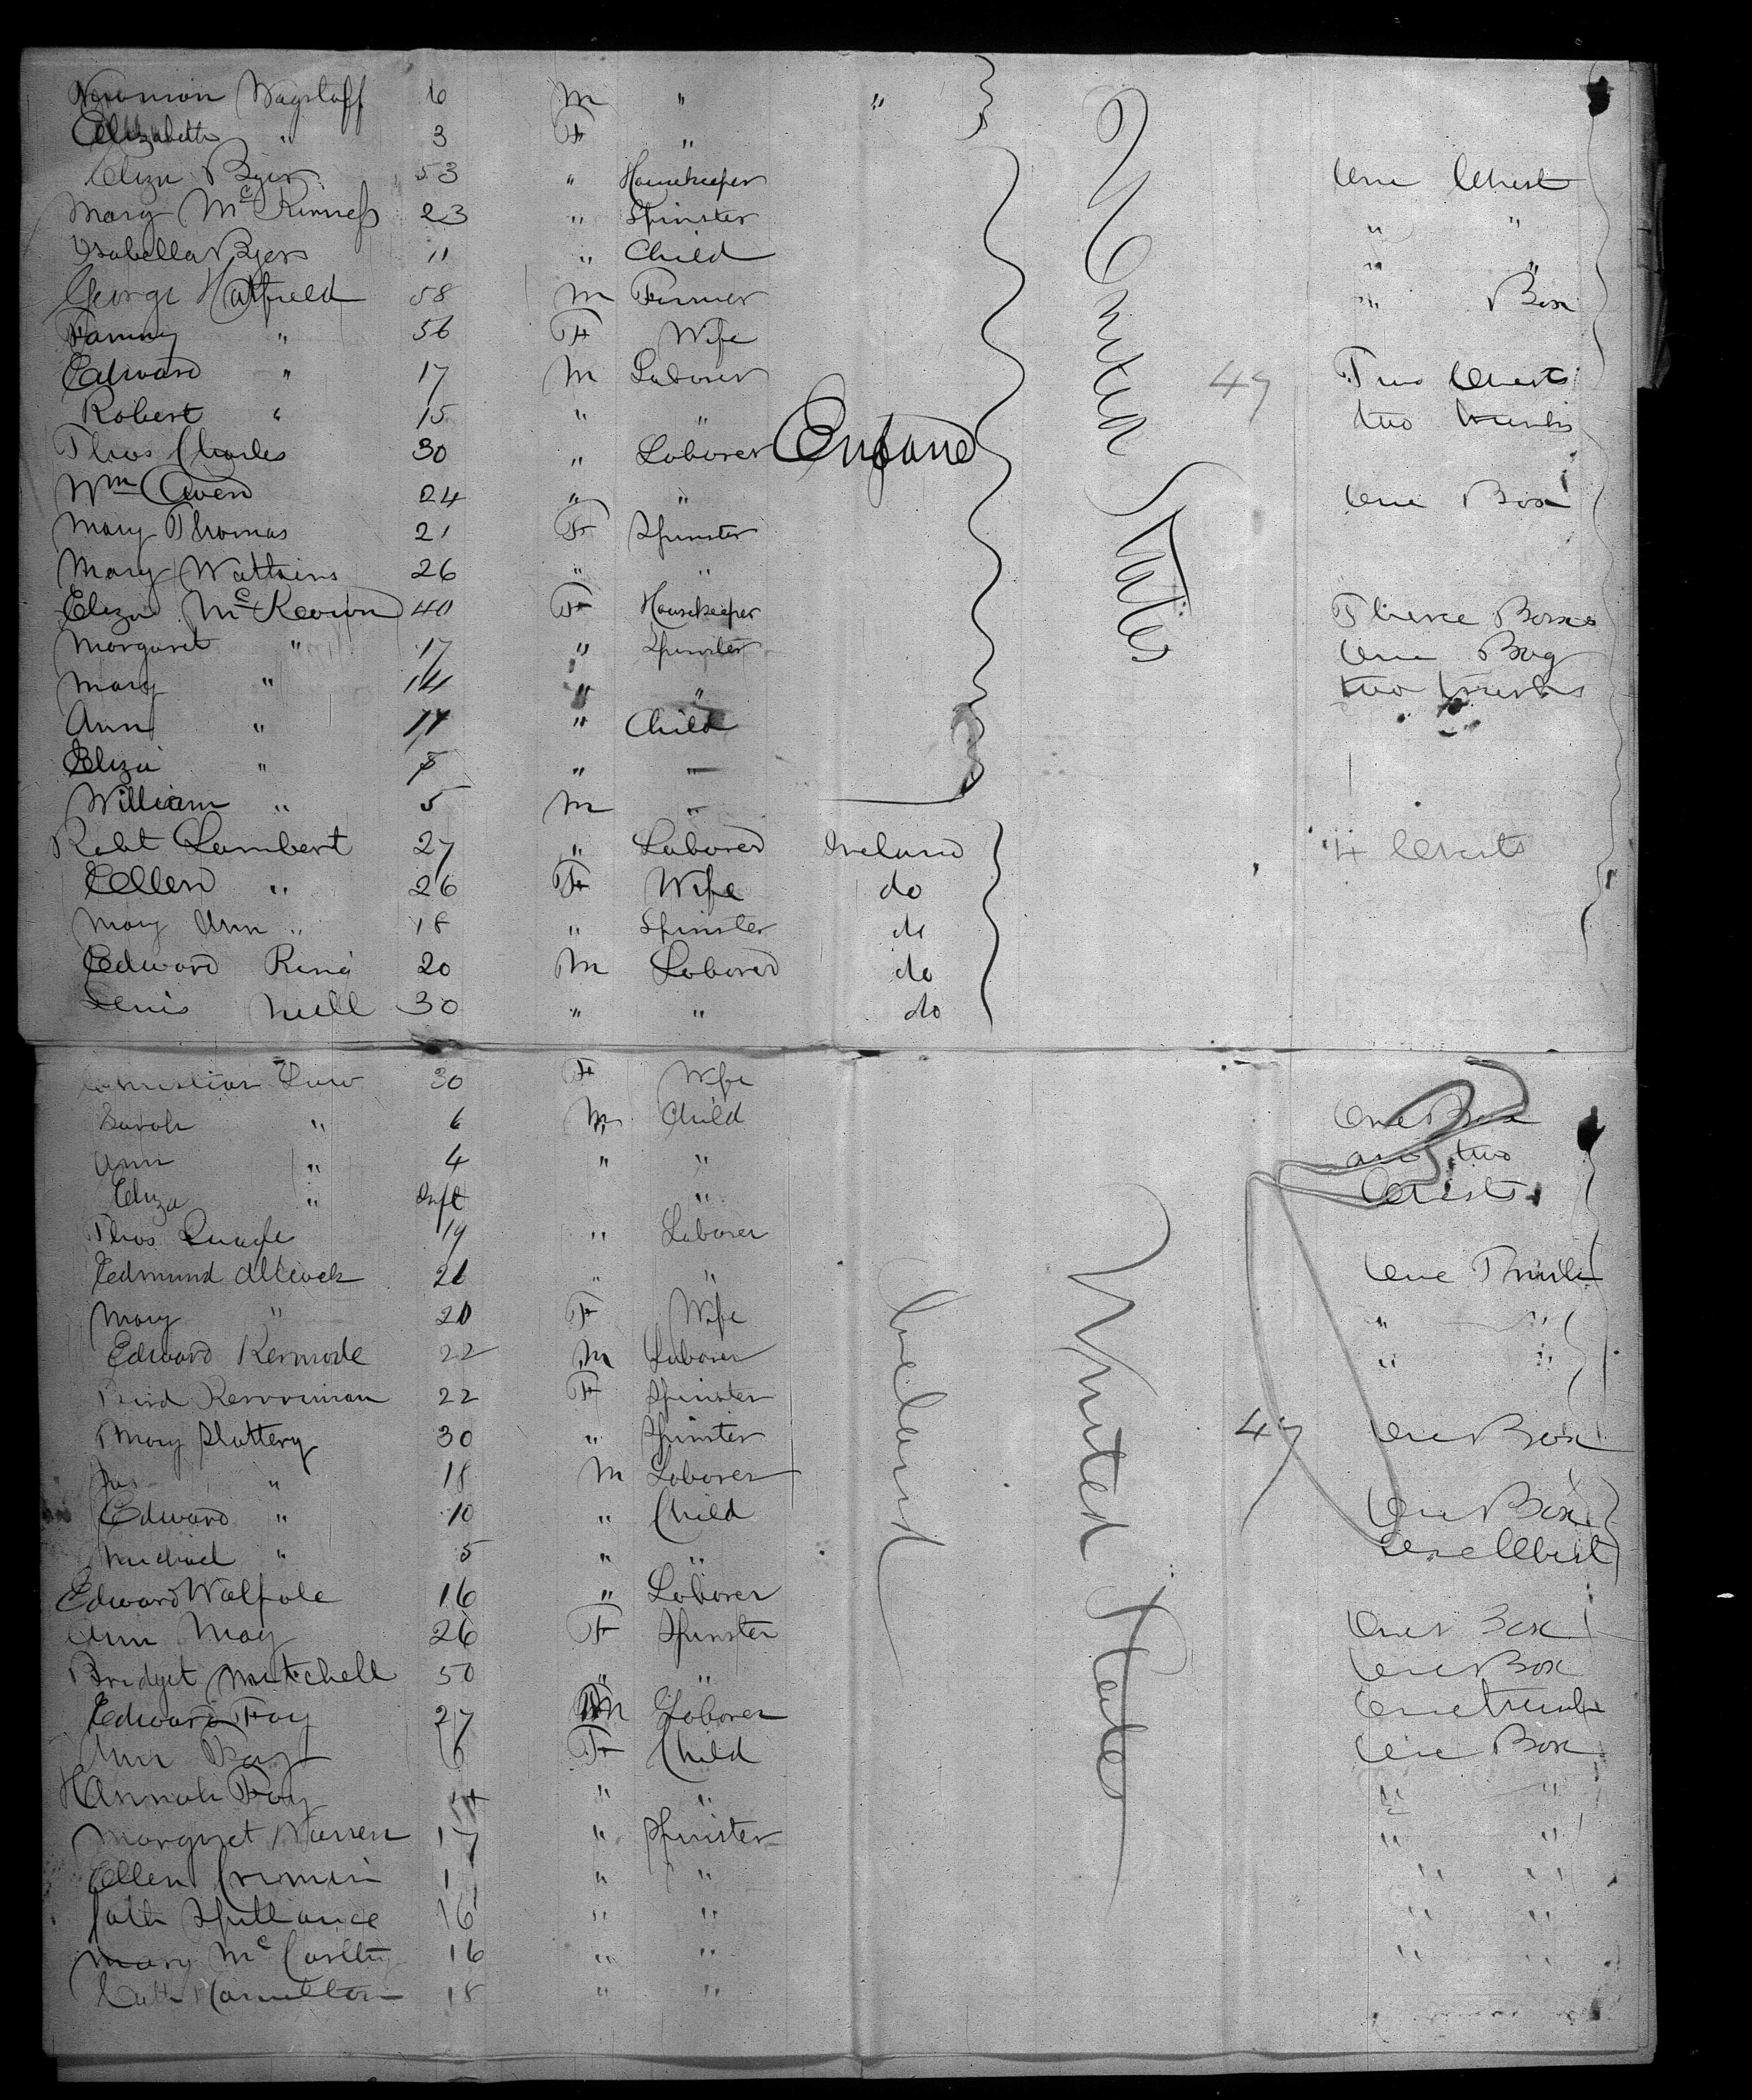 Wagstaff 6 m " "
Elizabeth " 3 F "
Eliza Byers 53 " Housekeeper One Chest
Mary McKinness 23 " Spinster " "
Isabella Byers 11 " Child " "
George Hatfield 58 m Farmer " Box
Fanny " 56 F Wife
Edward " 17 m Laborer Two Chests
Robert " 15 " " two trunks
Thos Charles 30 " Laborer England
Wm Owen 24 " " One Box
Mary Thomas 21 F Spinster
Mary Watkins 26 " "
Eliza McKeown 40 F Housekeeper Three Boxes
Margaret " 17 " Spinster One Bag
Mary " 14 " " two trunks
Ann " 11 " Child
Eliza " " "
William " 5 m "
Robt Lambert 27 " Laborer Ireland 4 Chests
Ellen " 26 F Wife do
Mary Ann " 18 " Spinster do
Edward Ring 20 m Laborer do
Denis Neill 30 " " do
United States
47
Christian 30 F Wife
Sarah " 6 m Child One Box
Ann " 4 " " and two
Eliza " Inft " Chests
Thos Quayle 19 " Laborer
Edmund Allcock 21 " " One Trunk
Mary " 20 F Wife " "
Edward Kermode 22 m Laborer " "
22 F Spinster
Mary Slattery 30 " Spinster One Box
Jas " 18 m Laborer
Edward " 10 " Child One Box
Michael " 5 " " One Chest
Edward Walpole 16 " Laborer
Ann May 26 F Spinster One Box
Bridget Mitchell 50 " " One Box
Edward Foy 27 m Laborer One trunk
Ann Foy 6 F Child One Box
Hannah Foy " " " "
Margaret Warren 17 " Spinster " "
Ellen Cremin " " " "
Cath Spillance 16 " " " "
Mary McCarthy 16 " " " "
Cath Hamilton 18 " "
Ireland
United States
47